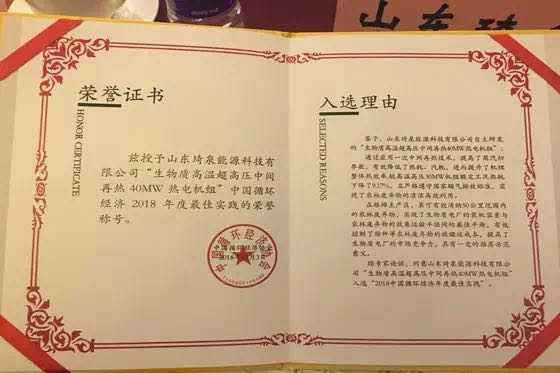 荣誉证书
HONOR CERTIFICATE
兹授予山东琦泉能源科技有限
公司“生物质高温超高压中间
再热40MW热电机组”中国循环
经济2018年度最佳实践的荣誉
称号。
中国循环经济协会
入选理由
SELECTED REASONS
鉴于，山东琦泉能源科技有限公司自主研发
的“生物质高温超高压中间再热40MW热电机组”：
通过应用一次中间再热技术，提高了蒸汽初
参数，有效降低了热耗、汽耗，进而提升了机组
整体热效率，较高温高压30MW机组额定工况热耗
下降了9.17%，且严格遵守国家烟气排放标准，实现
了农林废弃物的清洁高效利用。
在桂棉主产区，其可有效消纳50公里范围内
的农林废弃物，实现了生物质电厂的装机容量与
农林废弃物的收集运输半径间的最佳平衡，有效
控制了秸秆等农林废弃物的收储运成本，提高了
生物质电厂的市场竞争力，具有一定的推荐示范
意义。
经专家论证，同意山东琦泉能源科技有限公
司“生物质高温超高压中间再热40MW热电机组”
入选“2018中国循环经济年度最佳实践”。